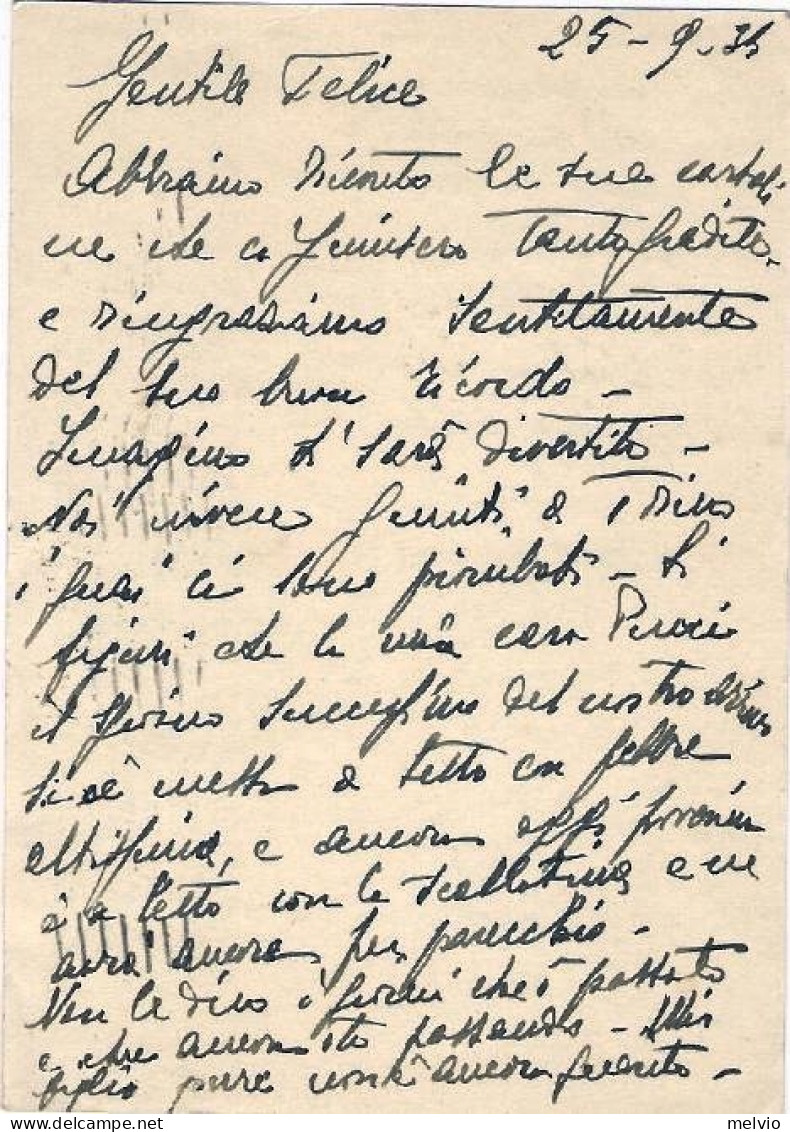 25-9-34
Gentile Felice
Abbiamo ricevuto le sue cartoli
ne che ci giunsero tanto gradite
e ringraziamo sentitamente
del suo buon ricordo -
Imagino si sarà divertito -
Noi invece giunti a
i guai ci sono piombati - Si
figuri che la mia cara
il giorno del nostro arrivo
si è messa a letto con febbre
altissima, e ancora oggi
è a letto con la scarlatina e ne
avrà ancora per parecchio -
Non le dico i giorni che ò passato
e che ancora sto passando - Mio
figlio pure non è ancora guarito -
melvio